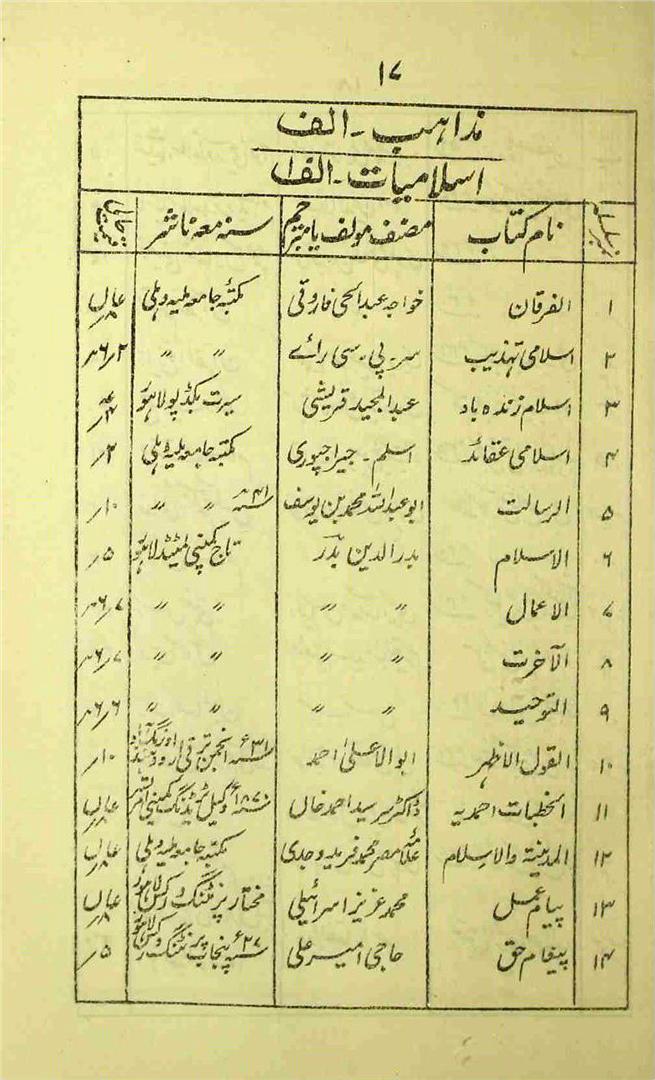 ۱۷
مذاہب - الف
اسلامیات - الف ۱
نمبر سلسلہ نام کتاب مصنف مولف یا مترجم سنہ معہ ناشر قیمت
۱ الفرقان خواجہ عبدالحی فاروقی مکتبہ جامعہ ملیہ دہلی
۲ اسلامی تہذیب سر۔ پی۔ سی رائے 〃 〃 ۲؍۶
۳ اسلام زندہ باد عبدالمجید قریشی سیرت بکڈپو لاہور
۴ اسلامی عقائد اسلم۔ جیراجپوری مکتبہ جامعہ ملیہ دہلی ۲؍
۵ الرسالت ابو عبداللہ محمد بن یوسف ۴۱ 〃 〃 ۱۰؍
۶ الاسلام بدرالدین بدر تاج کمپنی لمیٹڈ لاہور ۵؍
۷ الاعمال 〃 〃 〃 〃 ۷؍۶
۸ الآخرت 〃 〃 〃 〃 ۷؍۶
۹ التوحید 〃 〃 〃 〃 ۶؍۶
۱۰ القول الاظہر ابوالاعلیٰ احمد ۳۱ء انجمن ترقی اردو اورنگ آباد ۱۰؍
۱۱ الخطبات احمدیہ ڈاکٹر سر سید احمد خاں ۱۸۷۰ء وکیل ٹریڈنگ کمپنی امرتسر
۱۲ المدینۃ والاسلام علامہ مصر محمد فرید وجدی مکتبہ جامعہ ملیہ دہلی
۱۳ پیام عمل محمد عزیز اسرائیلی مختار پرنٹنگ ورکس لاہور
۱۴ پیغام حق حاجی امیر علی ۲۷ء پنجاب پرنٹنگ ورکس لاہور ۵؍